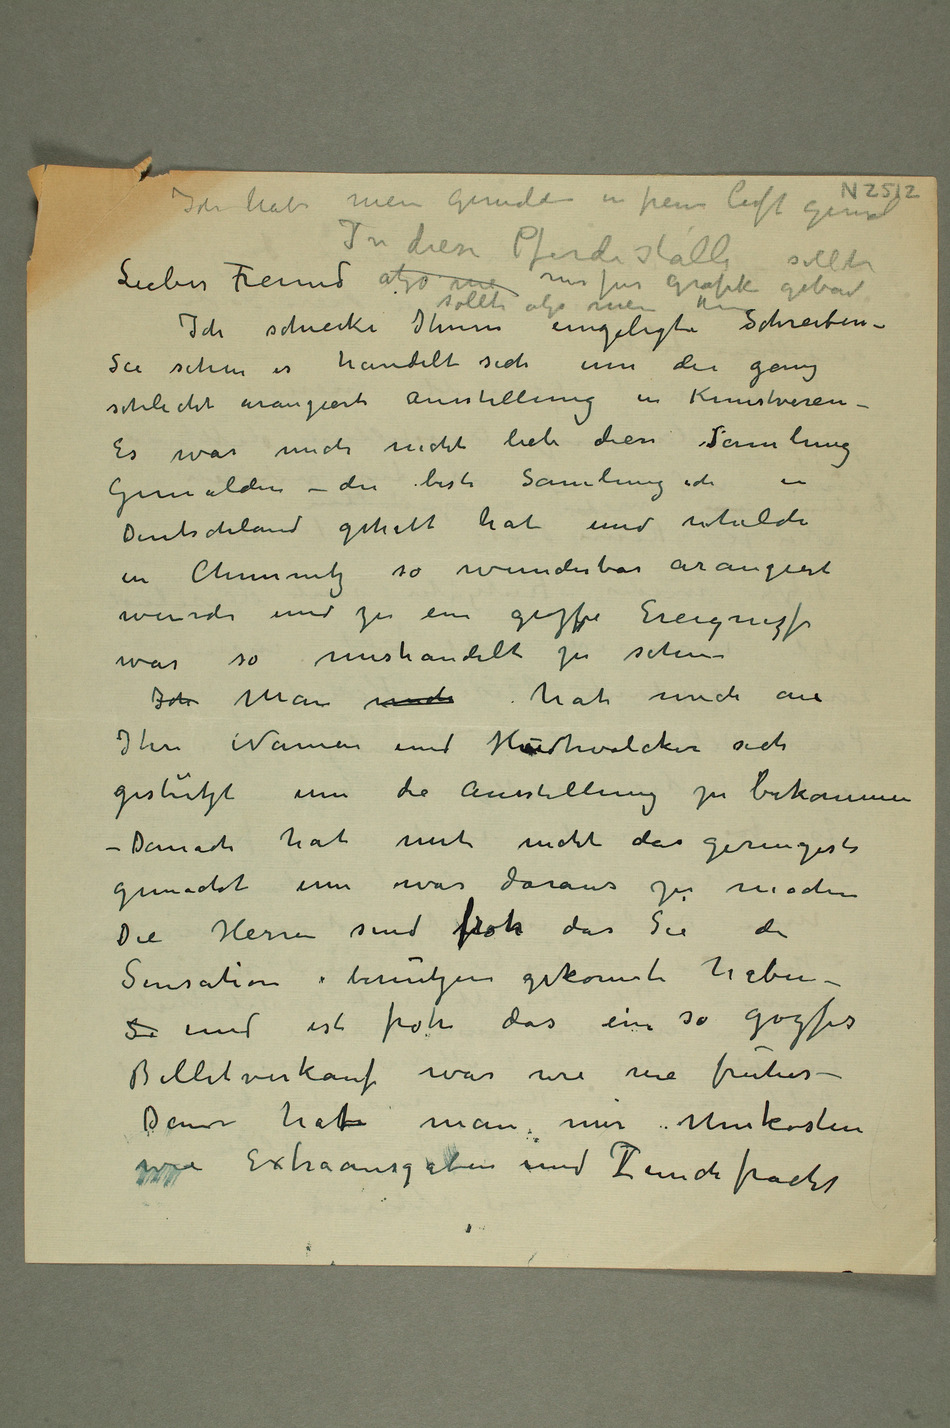 N 2512
Ich habe mein Gemälde in freie Luft gemal
In diese Pferdeställe sollte
Lieber Freund also me nur für Grafik gebaut
sollte also mein
Ich schicke Ihnen eingelegte Schreiben –
Sie sehen es handelt sich um die ganz
schlecht arangierte Ausstellung in Kunstverein –
Es war mich nicht lieb diese Samlung
Gemälden – die beste Samlung ich in
Deutschland gehatt hat und welche
in Chemnitz so wunderbar arangiert
wurde und zu ein großse Ereignisse
war so mishandelt zu sehen
Ich Man mich hat mich an
Ihre Namen und Hudtwalcker sich
gestützt um die Ausstellung zu bekommen
– Danach hat mit nicht das geringeste
gemacht um was daraus zu machen
Die Herren sind froh das Sie die
Sensation benützen gekonnte haben –
Si und ist froh das ein so großses
Billetverkauf war wie nie früher –
Dann hat man mir Unkosten
wie Extraausgaben und Rundefracht